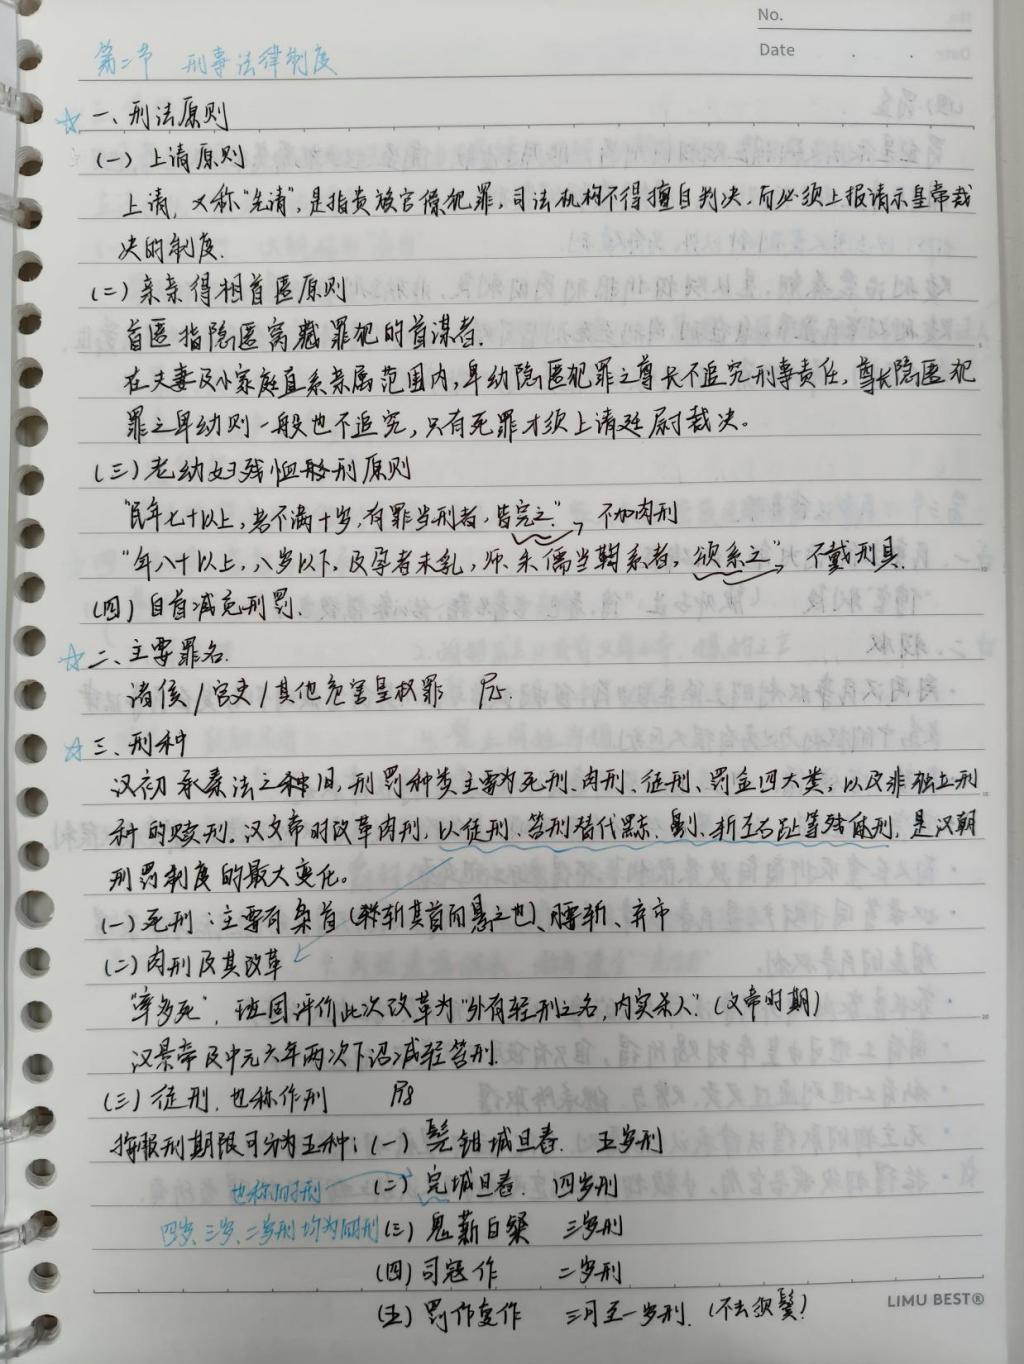 No.
Date
第二节 刑事法律制度
☆一、刑法原则
(一)上请原则
上请,又称“先请”,是指贵族官僚犯罪,司法机构不得擅自判决,而必须上报请示皇帝裁
决的制度.
(二)亲亲得相首匿原则
首匿指隐匿窝藏罪犯的首谋者.
在夫妻及小家庭直系亲属范围内,卑幼隐匿犯罪之尊长不追究刑事责任,尊长隐匿犯
罪之卑幼则一般也不追究,只有死罪才须上请廷尉裁决。
(三)老幼妇残恤刑原则
“民年七十以上,若不满十岁,有罪当刑者,皆完之” 不加肉刑
“年八十以上,八岁以下,及孕者未乳,师、朱儒当鞠系者,颂系之” 不戴刑具.
(四)自首减免刑罚.
☆二、主要罪名.
诸侯/官吏/其他危害皇权罪
☆三、刑种
汉初承秦法之种旧,刑罚种类主要为死刑、肉刑、徒刑、罚金四大类,以及非独立刑
种的赎刑。汉文帝时改革肉刑,以徒刑、笞刑替代黥、劓、斩左右趾等残体刑,是汉朝
刑罚制度的最大变化。
(一)死刑:主要有枭首(斩其首而悬之也)、腰斩、弃市
(二)肉刑及其改革
“率多死”,班固评价此次改革为“外有轻刑之名,内实杀人”.(文帝时期)
汉景帝及中元六年两次下诏减轻笞刑.
(三)徒刑.也称作刑
按服刑期限可分为五种:(一)髡钳城旦舂. 五岁刑
也称耐刑 (二)完城旦舂. 四岁刑
四岁、三岁、二岁刑均为耐刑 (三)鬼薪白粲 三岁刑
(四)司寇作 二岁刑
(五)罚作复作 三月至一岁刑.(不去须鬓)
LIMU BEST®